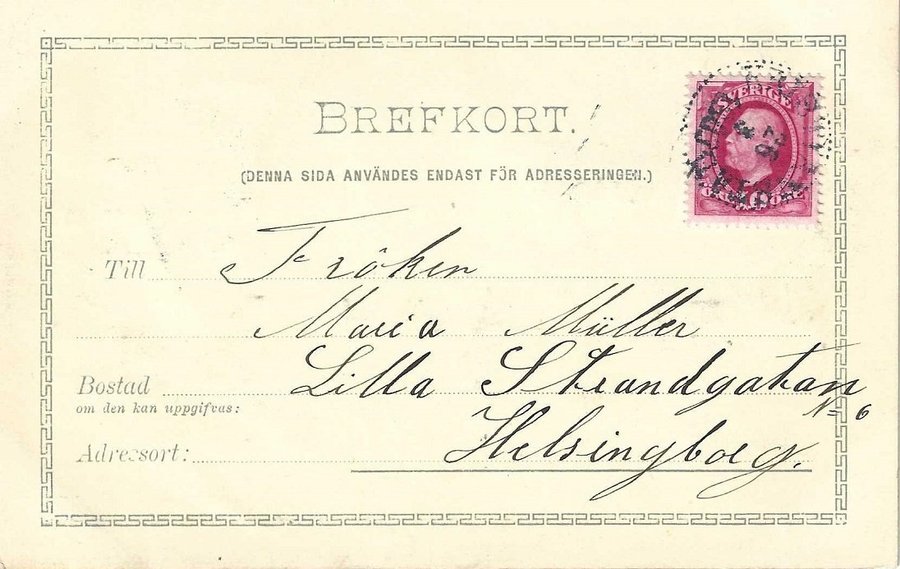 BREFKORT.
(DENNA SIDA ANVÄNDES ENDAST FÖR ADRESSERINGEN.)
SVERIGE
Till Fröken
Maria Müller
Bostad Lilla Strandgatan
om den kan uppgifvas: No 6
Adressort: Helsingborg.